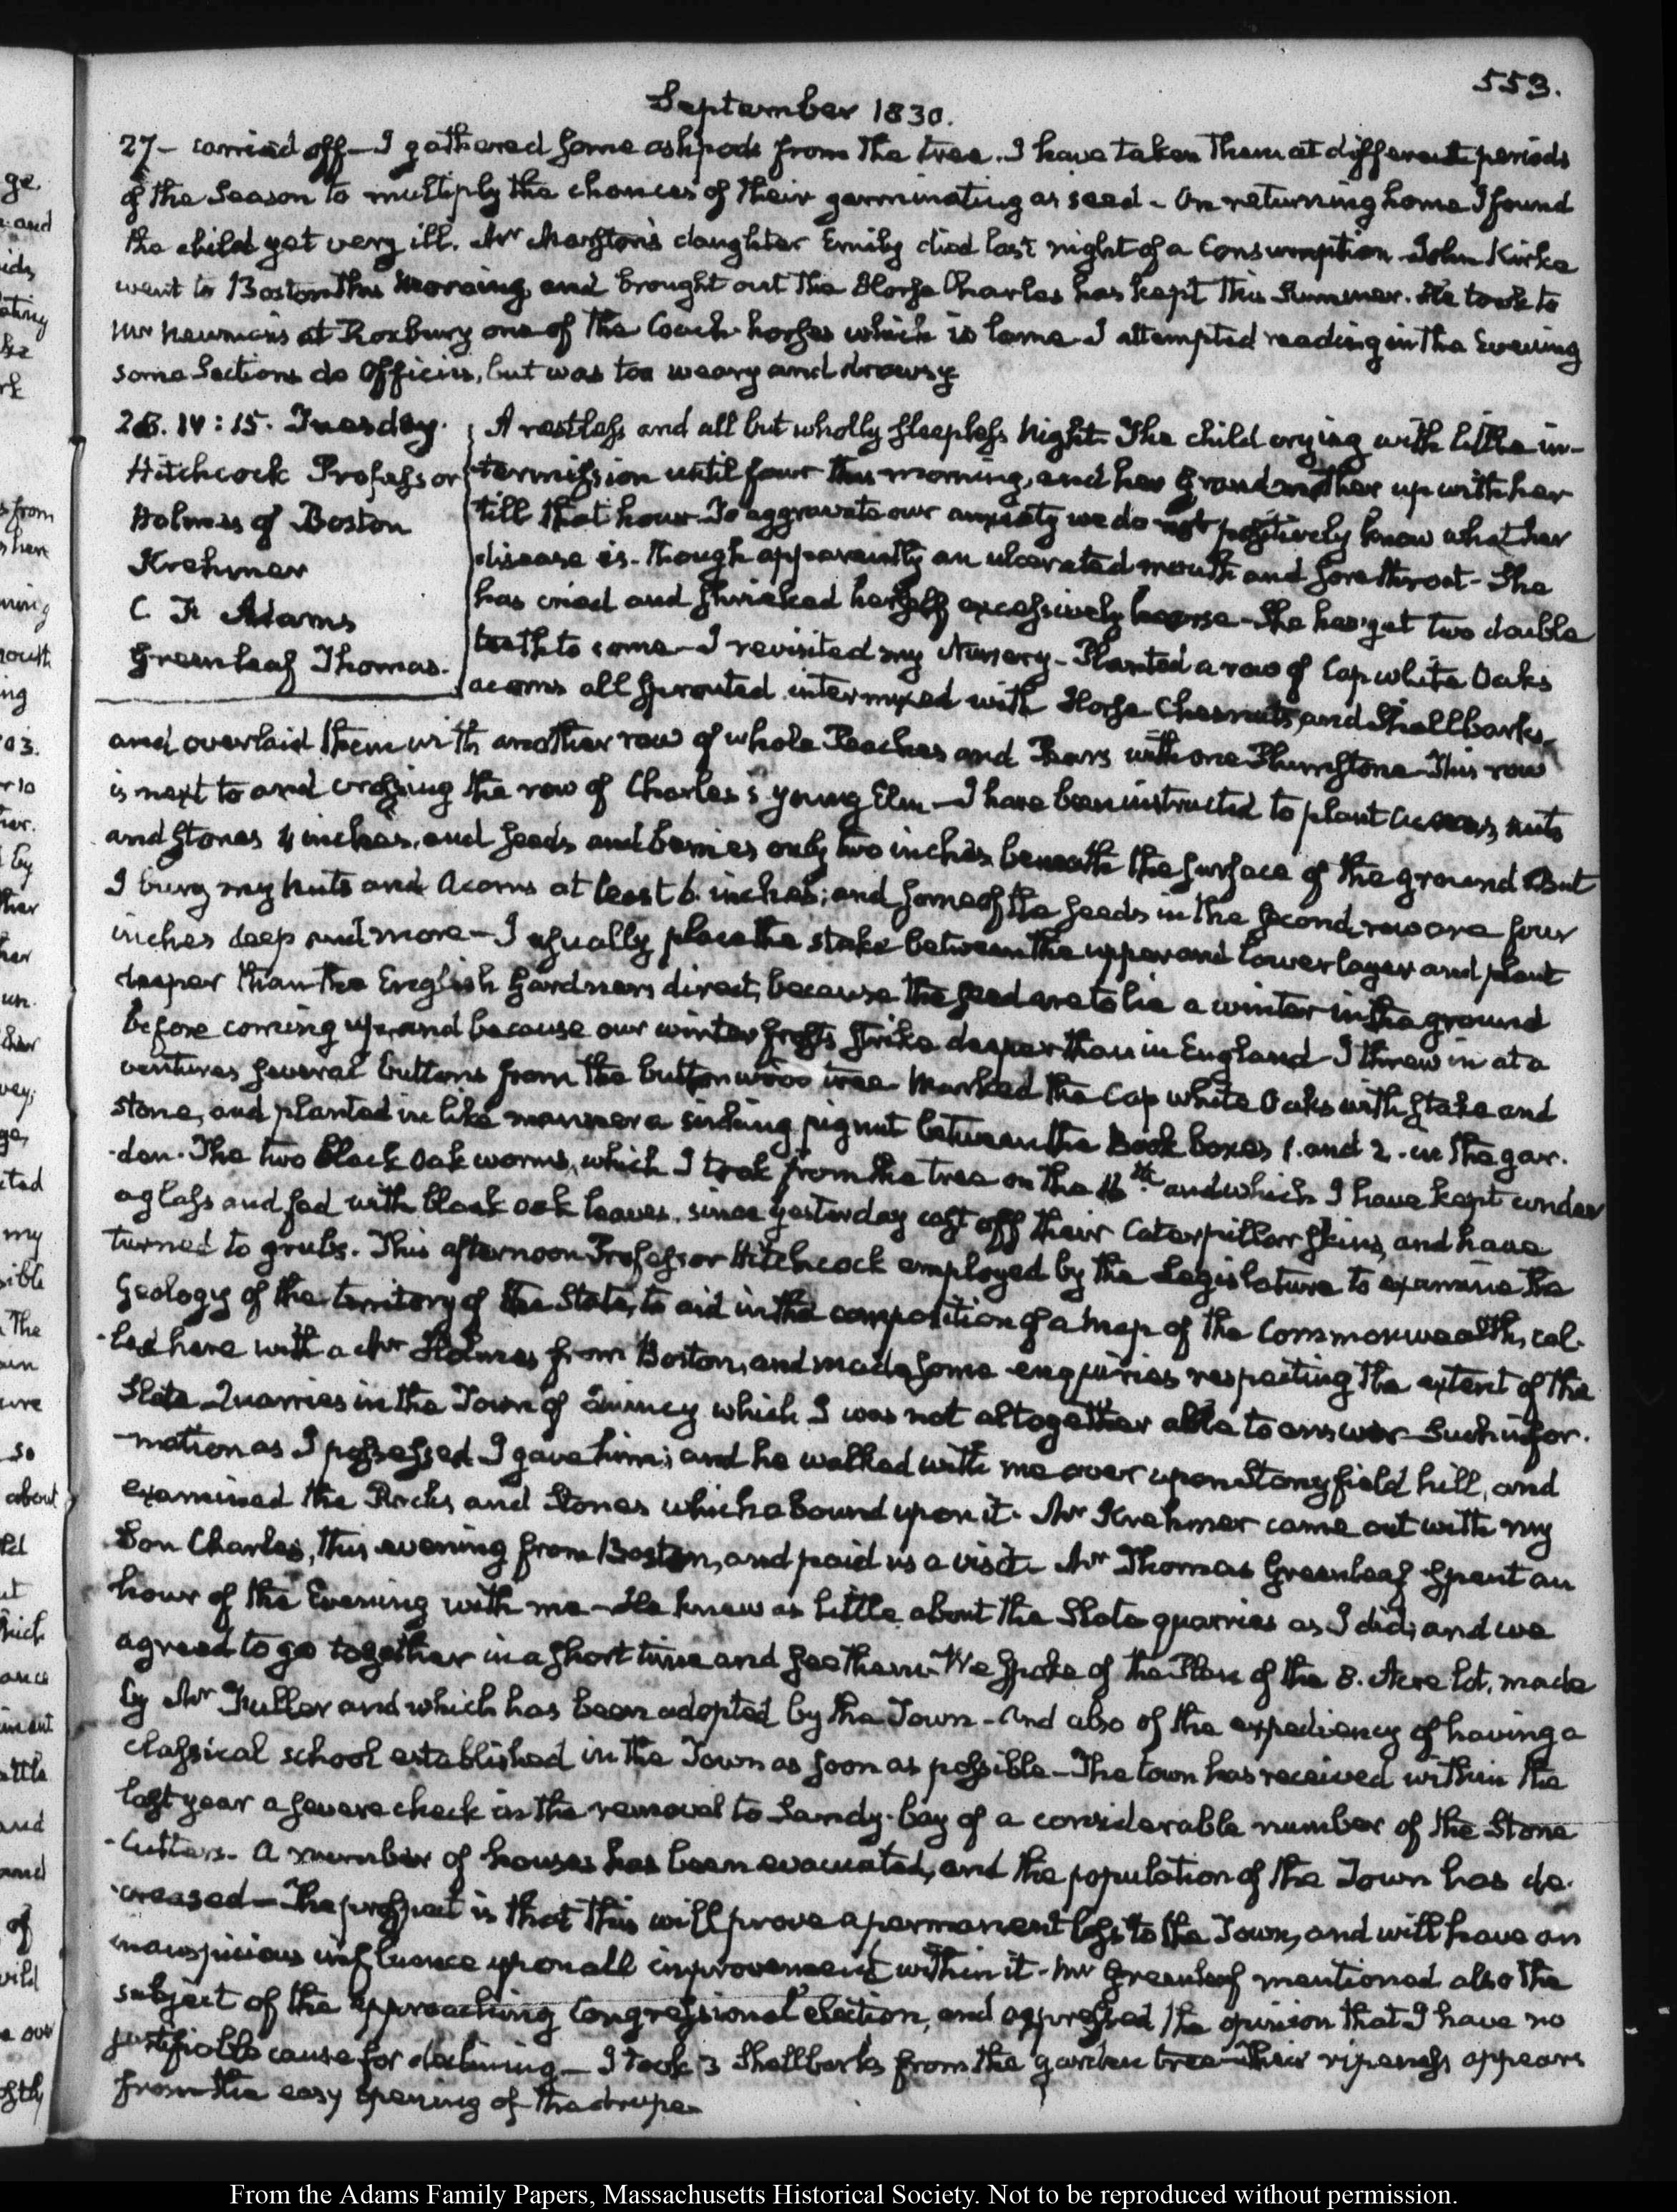 553.
September 1830.
27 – carried off – I gathered some ashpods from the tree. I have taken them at different periods
of the Season to multiply the chances of their germinating as seed – On returning home I found
the child yet very ill. Mr Marston's daughter Emily died last night of a Consumption – John Kirke
went to Boston this Morning, and brought out the Horse Charles has kept this Summer. He took to
Mr Newman's at Roxbury one of the Coach-horses which is lame – I attempted reading in the Evening
some Sections de Officiis, but was too weary and drowsy
28. IV: 15. Tuesday.
Hitchcock Professor
Holmes of Boston
Krehmer
C. F. Adams
Greenleaf Thomas.
A restless and all but wholly sleepless Night. The child crying with little in-
termission until four this morning, and her Grandmother up with her
till that hour. To aggravate our anxiety we do not positively know what her
disease is – though apparently an ulcerated mouth and sore throat – She
has cried and shrieked herself excessively hoarse – She has yet two double
teeth to come – I revisited my Nursery – Planted a row of Cap white Oaks
acorns all sprouted intermixed with Horse Chesnuts, and Shellbarks,
and overlaid them with another row of whole Peaches and Pears with one Plumstone – This row
is next to and crossing the row of Charles's young Elm – I have been instructed to plant acorns, nuts
and stones 4 inches, and seeds and berries only two inches beneath the surface of the ground – But
I bury my nuts and Acorns at least 6. inches; and some of the seeds in the second row are four
inches deep and more – I usually place the stake between the upper and lower layer and plant
deeper than the English Gardners direct, because the seed are to lie a winter in the ground
before coming up, and because our winter frosts strike deeper than in England – I threw in at a
venture several buttons from the buttonwood tree – Marked the Cap white Oaks with stake and
stone, and planted in like manner a pignut between the Book boxes 1. and 2. in the gar-
-den. The two black Oak worms, which I took from the tree on the 16th. and which I have kept under
a glass and fed with black oak leaves, since yesterday cast off their Caterpillar skins, and have
turned to grubs. This afternoon Professor Hitchcock employed by the Legislature to examine the
Geology of the territory of the State, to aid in the composition of a Map of the Commonwealth, cal-
-led here with a Mr Holmes from Boston, and made some enquiries respecting the extent of the
Slate Quarries in the Town of Quincy which I was not altogether able to answer – Such infor-
-mation as I possessed I gave him; and he walked with me over upon Stonyfield hill, and
examined the Rocks and Stones which abound upon it. Mr Krehmer came out with my
Son Charles, this evening from Boston, and paid us a visit – Mr Thomas Greenleaf spent an
hour of the Evening with me – He knew as little about the Slate quarries as I did; and we
agreed to go together in a short time and see them – We spoke of the Plan of the 8. Acre lot, made
by Mr Fuller and which has been adopted by the Town – And also of the expediency of having a
classical school established in the Town as soon as possible – The town has received within the
last year a severe check in the removal to Sandy-bay of a considerable number of the Stone
-Cutters. A number of houses has been evacuated, and the population of the Town has de-
-creased – The prospect is that this will prove a permanent loss to the Town, and will have an
inauspicious influence upon all improvement within it – Mr Greenleaf mentioned also the
subject of the approaching Congressional election, and expressed the opinion that I have no
justifiable cause for declining – I took 3 Shellbarks from the garden tree – Their ripeness appears
from the easy opening of the drupe –
From the Adams Family Papers, Massachusetts Historical Society. Not to be reproduced without permission.